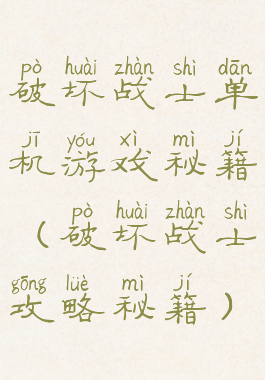 pò huài zhàn shì dān
破坏战士单
jī yóu xì mì jí
机游戏秘籍
pò huài zhàn shì
（破坏战士
gōng lüè mì jí
攻略秘籍）